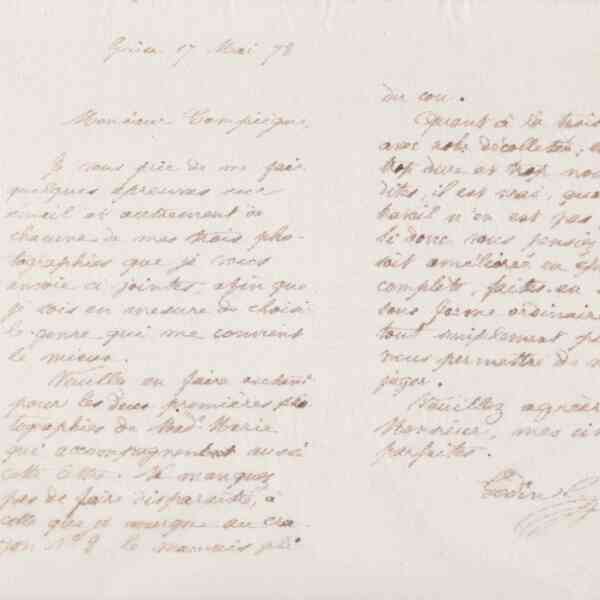 17 Mai 78
Monsieur
Je vous prie de me faire
quelques épreuves avec
émail et autrement de
chacune de mes trois pho-
tographies que je vous
envoie ci jointes afin que
je sois en mesure de choisir
le genre qui me convient
le mieux.
Veuillez en faire autant
pour les deux premières pho
tographies de Marie
qui accompagnent aussi
cette lettre. Ne manquez
pas de faire disparaître, à
celle que je marque au cra-
yon N° 2 le mauvais pli
du cou.
Quant à la trois
avec robe décolletée,
trop dure et trop
dites, il est vrai,
travail n'en est pas
Si donc vous pensiez
soit améliorée en
complets, faites-en
sous forme ordinaire
tout simplement
vous permettre de
juger.
Veuillez agréer
Monsieur, mes
parfaites.